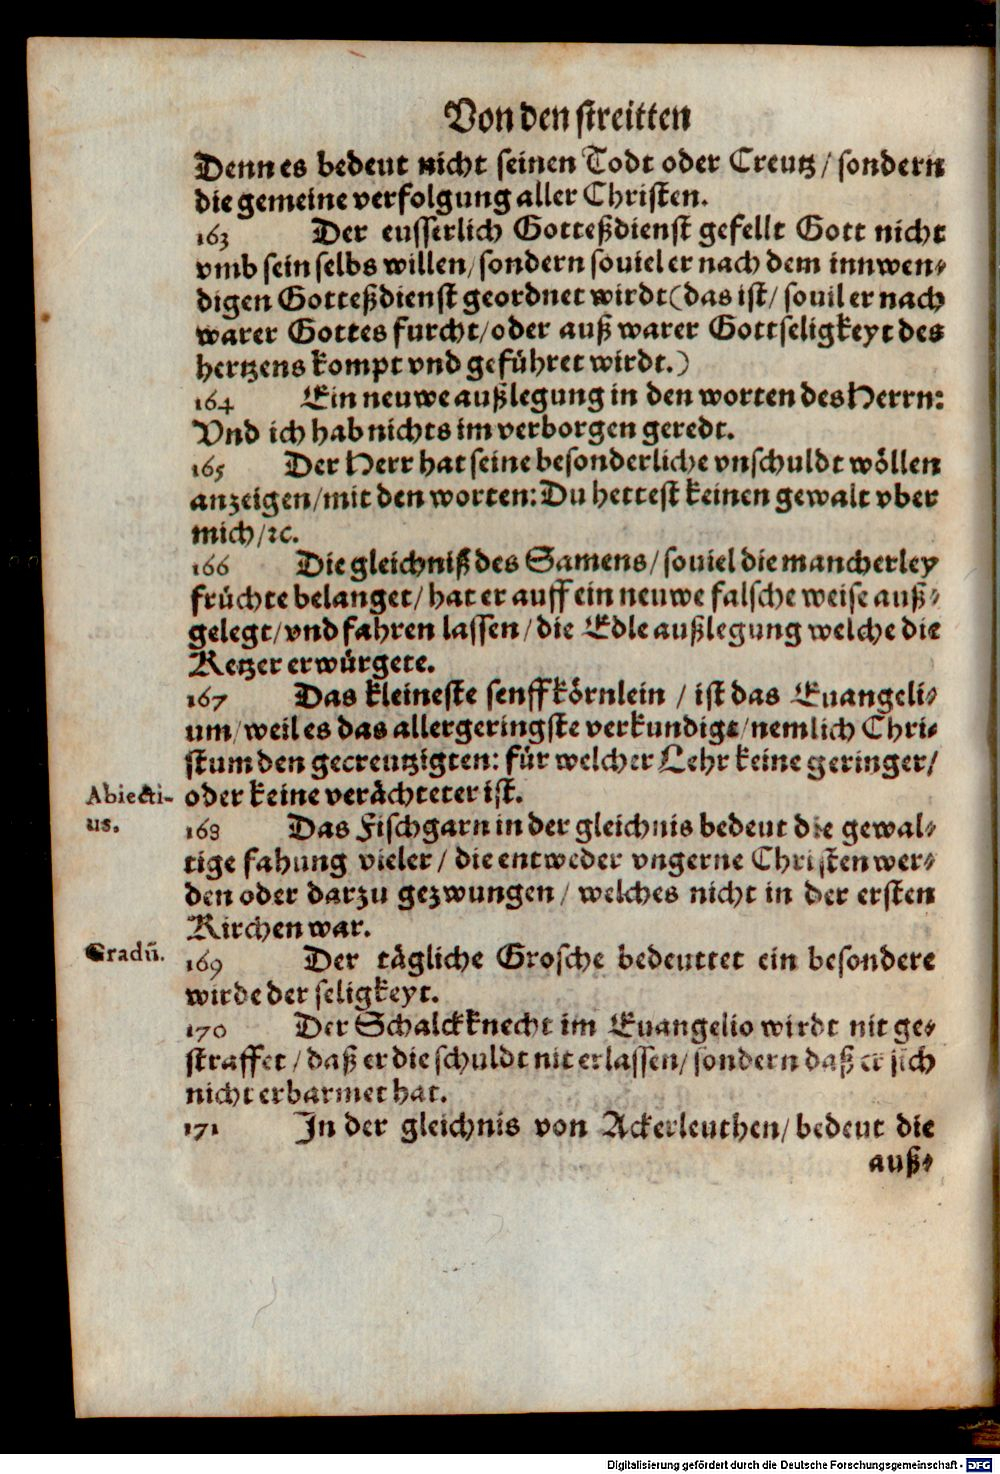 Von den streitten
Denn es bedeut nicht seinen Todt oder Creutz/ sondern
die gemeine verfolgung aller Christen.
163 Der eusserlich Gotteßdienst gefellt Gott nicht
vmb sein selbs willen/ sondern souiel er nach dem innwen-
digen Gotteßdienst geordnet wirdt (das ist/ souil er nach
warer Gottes furcht/ oder auß warer Gottseligkeyt des
hertzens kompt vnd geführet wirdt.)
164 Ein neuwe außlegung in den worten des Herrn:
Vnd ich hab nichts im verborgen geredt.
165 Der Herr hat seine besonderliche vnschuldt wöllen
anzeigen/ mit den worten: Du hettest keinen gewalt vber
mich/ ꝛc.
166 Die gleichniß des Samens/ souiel die mancherley
früchte belanget/ hat er auff ein neuwe falsche weise auß-
gelegt/ vnd fahren lassen/ die Edle außlegung welche die
Ketzer erwürgete.
167 Das kleineste senffkörnlein / ist das Euangeli-
um/ weil es das allergeringste verkundigt/ nemlich Chri-
stum den gecreutzigten: für welcher Lehr keine geringer/
Abiecti-
us.
oder keine verächteter ist.
168 Das Fischgarn in der gleichnis bedeut die gewal-
tige fahung vieler/ die entweder vngerne Christen wer-
den oder darzu gezwungen/ welches nicht in der ersten
Kirchen war.
Gradū.
169 Der tägliche Grosche bedeuttet ein besondere
wirde der seligkeyt.
170 Der Schalckknecht im Euangelio wirdt nit ge-
straffet/ daß er die schuldt nit erlassen/ sondern daß er sich
nicht erbarmet hat.
171 In der gleichnis von Ackerleuthen/ bedeut die
auß-
Digitalisierung gefördert durch die Deutsche Forschungsgemeinschaft - DFG